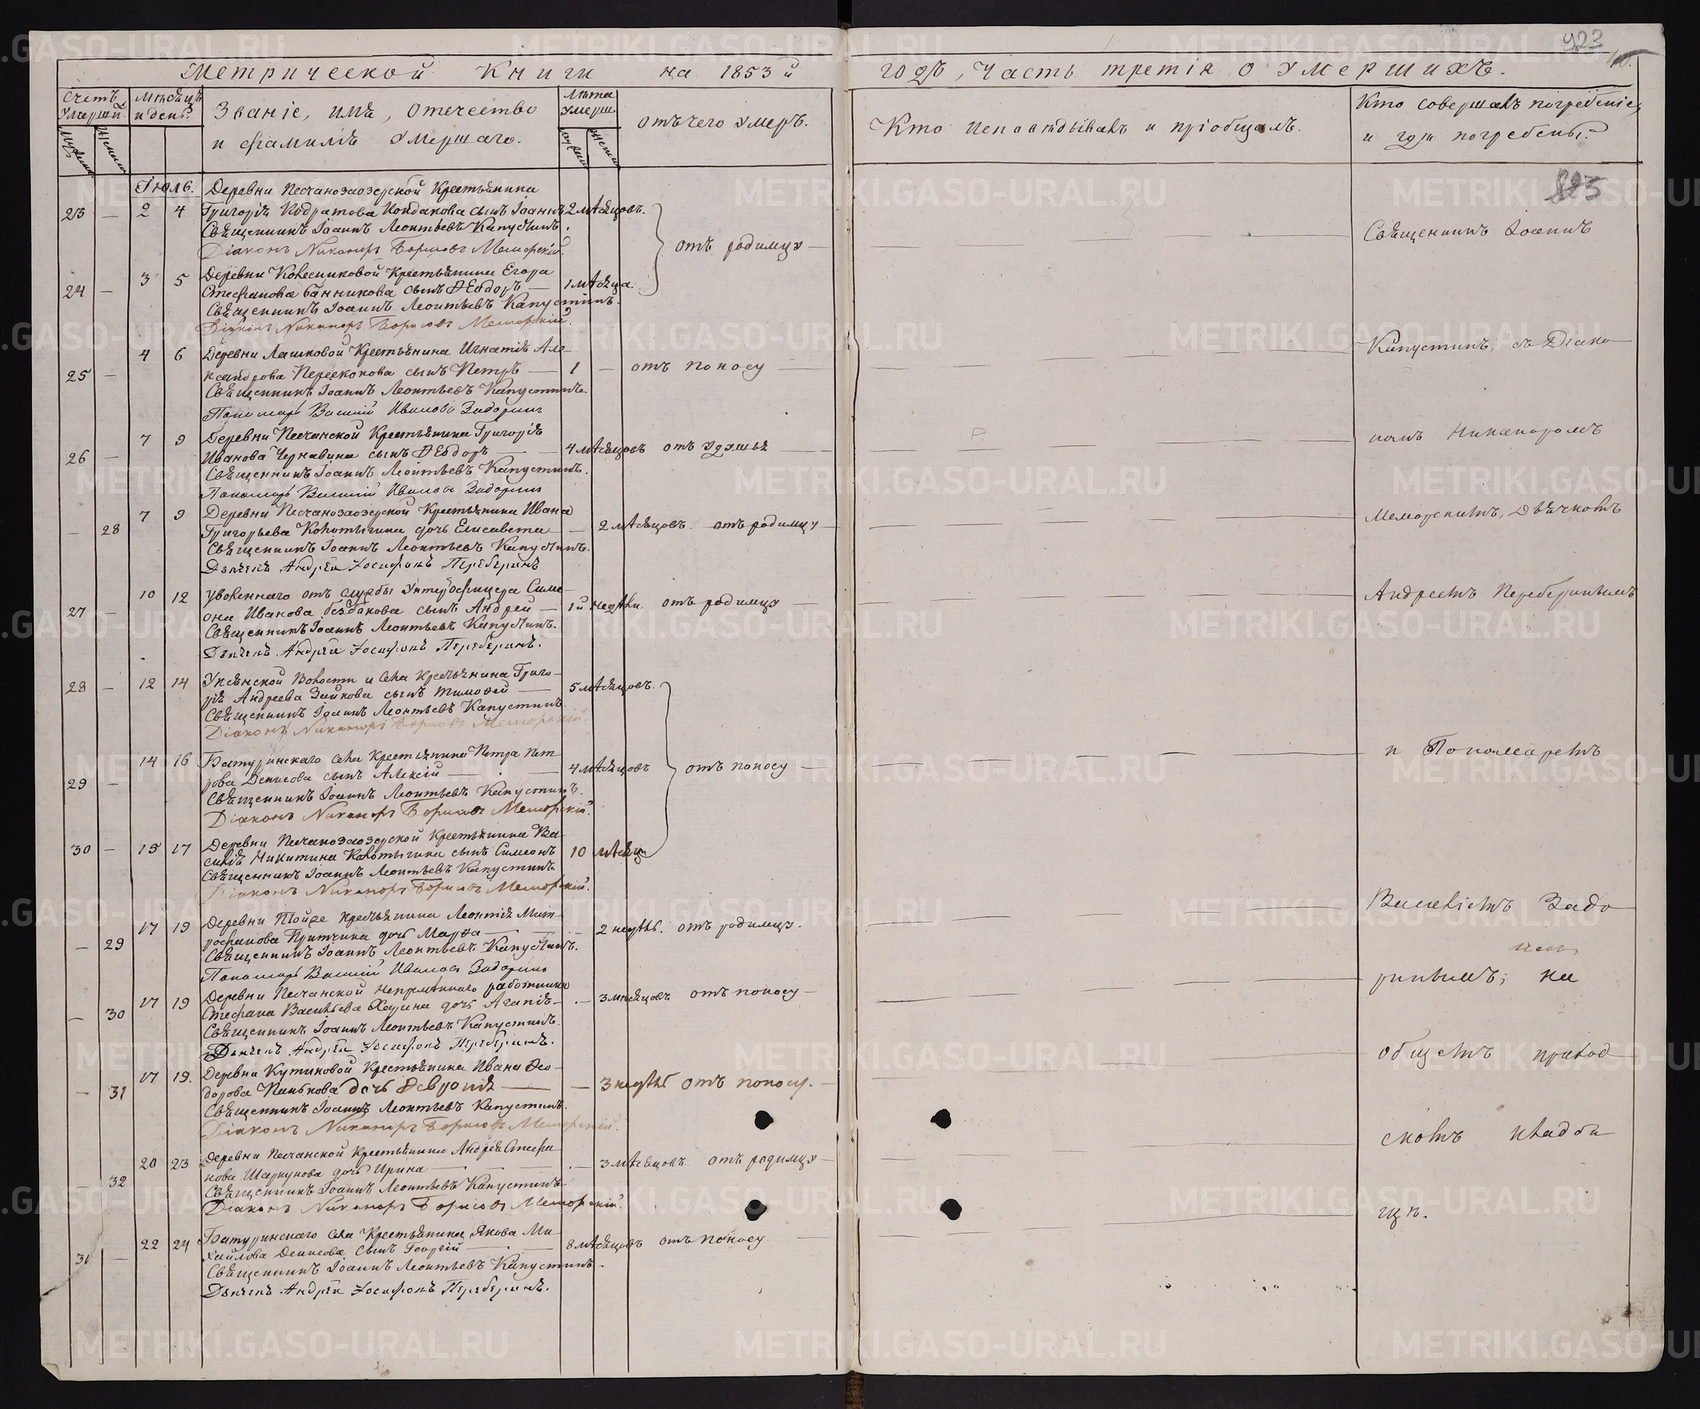 923
Метрической Книги на 1853й годъ, Часть третія о умершихъ.
Счетъ умерши.
Мѣсяцъ и день.
Званіе, имя, отечество
и фамилія умершаго.
Лѣта умерш.
отъ чего умеръ.
Кто исповѣдывалъ и пріобщалъ.
Кто совершалъ погребеніе,
и гдѣ погребены.
Іюль.
Деревни Песчаноозерской Крестьянина
23 — 2 4 Григорія Кодратова Кондакова сынъ Іоаннъ 2 мѣсяцовъ.
Священникъ Іоаннъ Леонтьевъ Капустинъ.
Діаконъ Никаноръ Борисовъ Меморскій.
отъ родимцу
Деревни Колесниковой Крестьянина Егора
24 — 3 5 Стефанова Банникова сынъ Ѳеодоръ — 1 мѣсяца.
Священникъ Іоаннъ Леонтьевъ Капустинъ.
Діаконъ Никаноръ Борисовъ Меморскій.
4 6 Деревни Лашковой Крестьянина Игнатія Але-
25 — ксандрова сынъ Петръ — 1 — отъ поносу
Священникъ Іоаннъ Леонтьевъ Капустинъ.
Пономарь Василій Ивановъ Задоринъ
7 9 Деревни Песчанской Крестьянина Григорія
26 — Иванова Чернавина сынъ Ѳеодоръ 4 мѣсяцовъ отъ удушья
Священникъ Іоаннъ Леонтьевъ Капустинъ.
Пономарь Василій Ивановъ Задоринъ
7 9 Деревни Песчаноозерской Крестьянина Ивана
— 28 Григорьева Колотыгина дочь Елисавета — 2 мѣсяцовъ. отъ родимцу
Священникъ Іоаннъ Леонтьевъ Капустинъ.
Дьячекъ Андрей Іосифовъ Переберинъ
10 12 Уволеннаго отъ службы Унтерофицера Симе-
27 — она Иванова сынъ Андрей — 1й недѣли. отъ родимцу
Священникъ Іоаннъ Леонтьевъ Капустинъ.
Дьячекъ Андрей Іосифовъ Переберинъ.
28 — 12 14 Уксянской Волости и села Крестьянина Григо-
рія Андреева Зайкова сынъ Тимофей — 5 мѣсяцовъ.
Священникъ Іоаннъ Леонтьевъ Капустинъ
Діаконъ Никаноръ Борисовъ Меморскій.
14 16 Батуринскаго села Крестьянина Петра Пет-
29 — рова Денисова сынъ Алексій — 4 мѣсяцовъ отъ поносу
Священникъ Іоаннъ Леонтьевъ Капустинъ.
Діаконъ Никаноръ Борисовъ Меморскій.
Деревни Песчаноозерской Крестьянина Ва-
30 — 15 17 силія Никитина Колотыгина сынъ Симеонъ 10 мѣсяц.
Священникъ Іоаннъ Леонтьевъ Капустинъ
Діаконъ Никаноръ Борисовъ Меморскій.
17 19 Деревни Крестьянина Леонтія Мит-
— 29 рофанова Притчина дочь Марѳа — 2 недѣль. отъ родимцу.
Священникъ Іоаннъ Леонтьевъ Капустинъ.
Пономарь Василій Ивановъ Задоринъ
17 19 Деревни Песчанской непремѣннаго работника
— 30 Стефана Васильева дочь Агапія — 3 мѣсяцовъ отъ поносу
Священникъ Іоаннъ Леонтьевъ Капустинъ.
Дьячекъ Андрей Іосифовъ Переберинъ.
17 19. Деревни Кутиковой Крестьянина Ивана Ѳео-
— 31 дорова Панькова дочь Ѳевронія — 3 недѣль отъ поносу.
Священникъ Іоаннъ Леонтьевъ Капустинъ.
Діаконъ Никаноръ Борисовъ Меморскій.
20 23 Деревни Песчанской Крестьянина Андрея Стефа-
— 32 нова Шаркунова дочь Ирина — 3 мѣсяцовъ отъ родимцу
Священникъ Іоаннъ Леонтьевъ Капустинъ.
Діаконъ Никаноръ Борисовъ Меморскій.
22 24 Батуринскаго села Крестьянина Якова Ми-
31 — хайлова Денисова сынъ Георгій — 8 мѣсяцовъ отъ поносу
Священникъ Іоаннъ Леонтьевъ Капустинъ.
Дьячекъ Андрей Іосифовъ Переберинъ.
Священникъ Іоаннъ
Капустинъ, съ Діако-
номъ Никаноромъ
Меморскимъ, Дьячкомъ
Андреемъ Переберинымъ
и Пономаремъ
Василіемъ Задо-
ринымъ; на
общемъ приход-
скомъ кладби-
щѣ.
METRIKI.GASO-URAL.RU